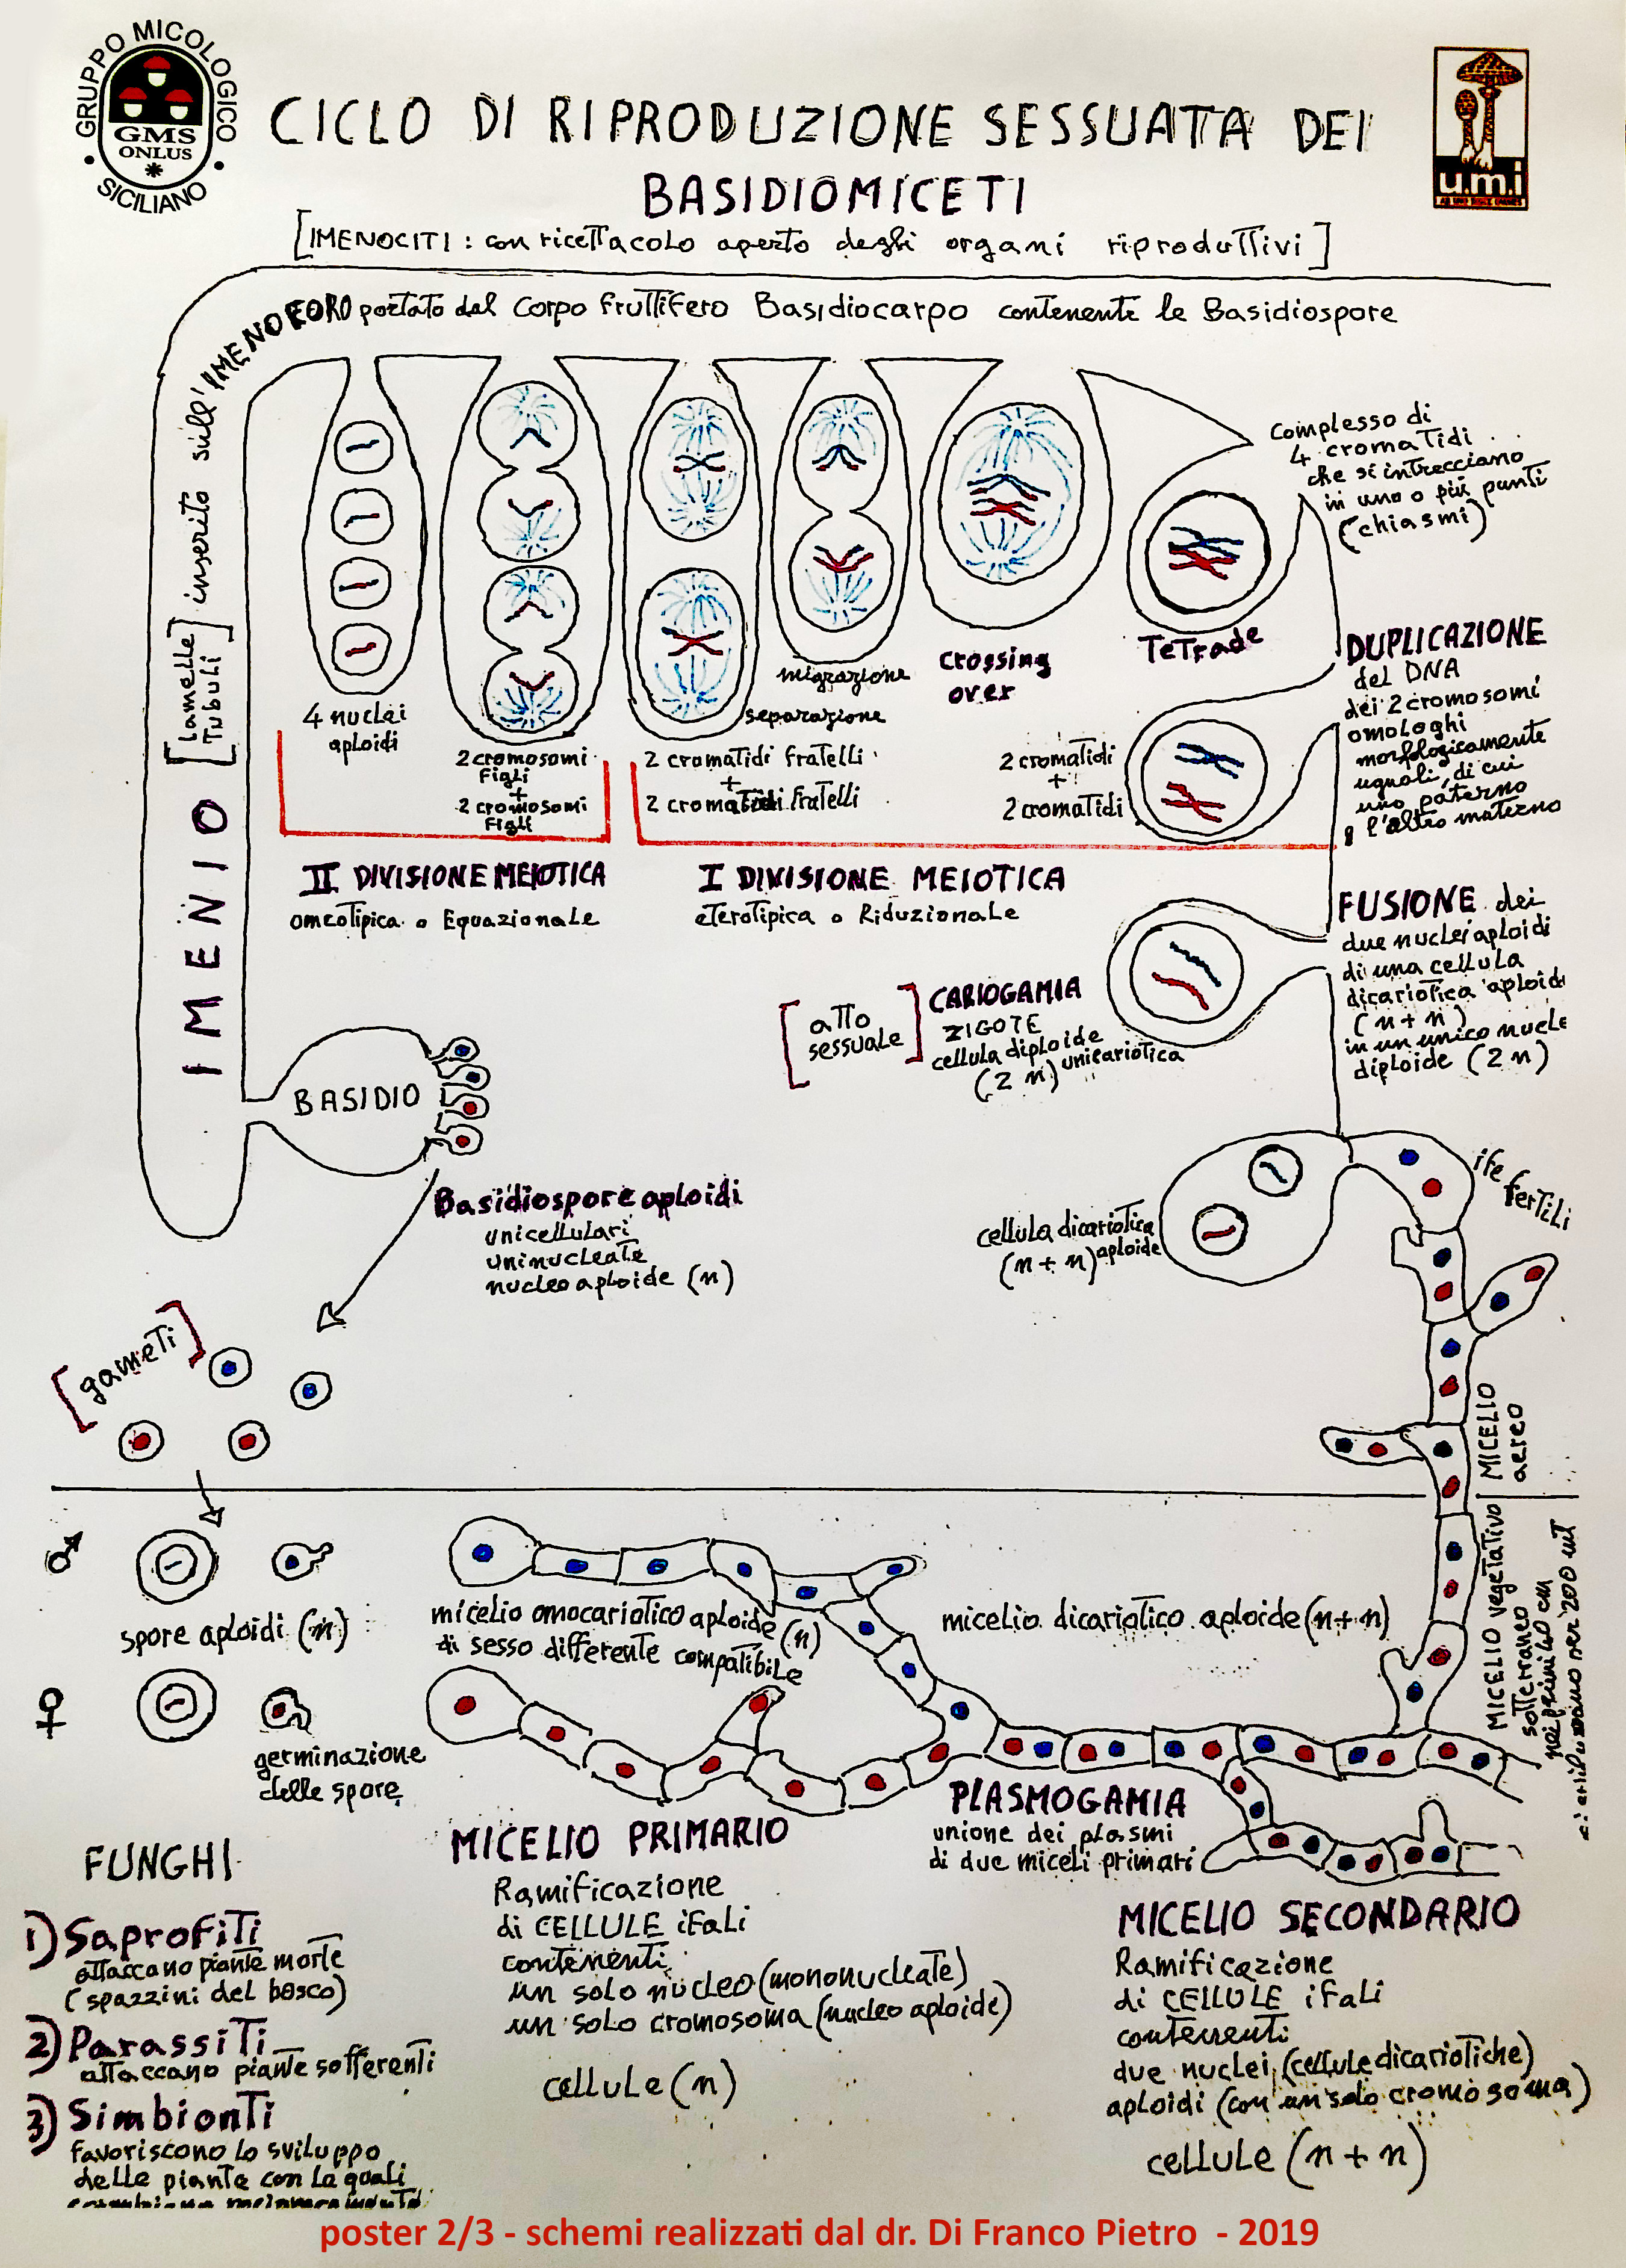 GRUPPO MICOLOGICO
GMS
ONLUS
SICILIANO
CICLO DI RIPRODUZIONE SESSUATA DEI
BASIDIOMICETI
[IMENOCITI : con ricettacolo aperto degli organi riproduttivi]
u.m.i
IMENIO [lamelle Tubuli] inserito sull' IMENOFORO portato dal Corpo fruttifero Basidiocarpo contenente le Basidiospore
4 nuclei
aploidi
2 cromosomi
Figli
+
2 cromosomi
Figli
II DIVISIONE MEIOTICA
omeotipica o Equazionale
separazione
2 cromatidi fratelli
+
2 cromatidi fratelli
migrazione
I DIVISIONE MEIOTICA
eterotipica o Riduzionale
crossing
over
Tetrade
complesso di
4 cromatidi
che si intrecciano
in uno o più punti
(chiasmi)
2 cromatidi
+
2 cromatidi
DUPLICAZIONE
del DNA
dei 2 cromosomi
omologhi
morfologicamente
uguali, di cui
uno paterno
e l'altro materno
FUSIONE dei
due nuclei aploidi
di una cellula
dicariotica aploide
(n + n)
in un unico nucle
diploide (2 n)
[atto
sessuale]
CARIOGAMIA
ZIGOTE
cellula diploide
(2 n) unicariotica
BASIDIO
Basidiospore aploidi
unicellulari
uninucleate
nucleo aploide (n)
cellula dicariotica
(n + n) aploide
ife
fertili
[gameti]
MICELIO
aereo
MICELIO vegetativo
sotterraneo
nei primi 40 cm
♂
spore aploidi (n)
♀
germinazione
delle spore
micelio omocariotico aploide (n)
di sesso differente compatibile
micelio dicariotico aploide (n + n)
PLASMOGAMIA
unione dei plasmi
di due miceli primari
FUNGHI
1) Saprofiti
attaccano piante morte
(spazzini del bosco)
2) Parassiti
attaccano piante sofferenti
3) Simbionti
favoriscono lo sviluppo
delle piante con le quali
MICELIO PRIMARIO
Ramificazione
di CELLULE ifali
contenenti
un solo nucleo (mononucleate)
un solo cromosoma (nucleo aploide)
cellule (n)
MICELIO SECONDARIO
Ramificazione
di CELLULE ifali
contenenti
due nuclei (cellule dicariotiche)
aploidi (con un solo cromosoma)
cellule (n + n)
poster 2/3 - schemi realizzati dal dr. Di Franco Pietro - 2019